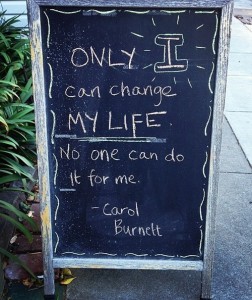 ONLY I
can change
MY LIFE.
No one can do
it for me.
- Carol
Burnett